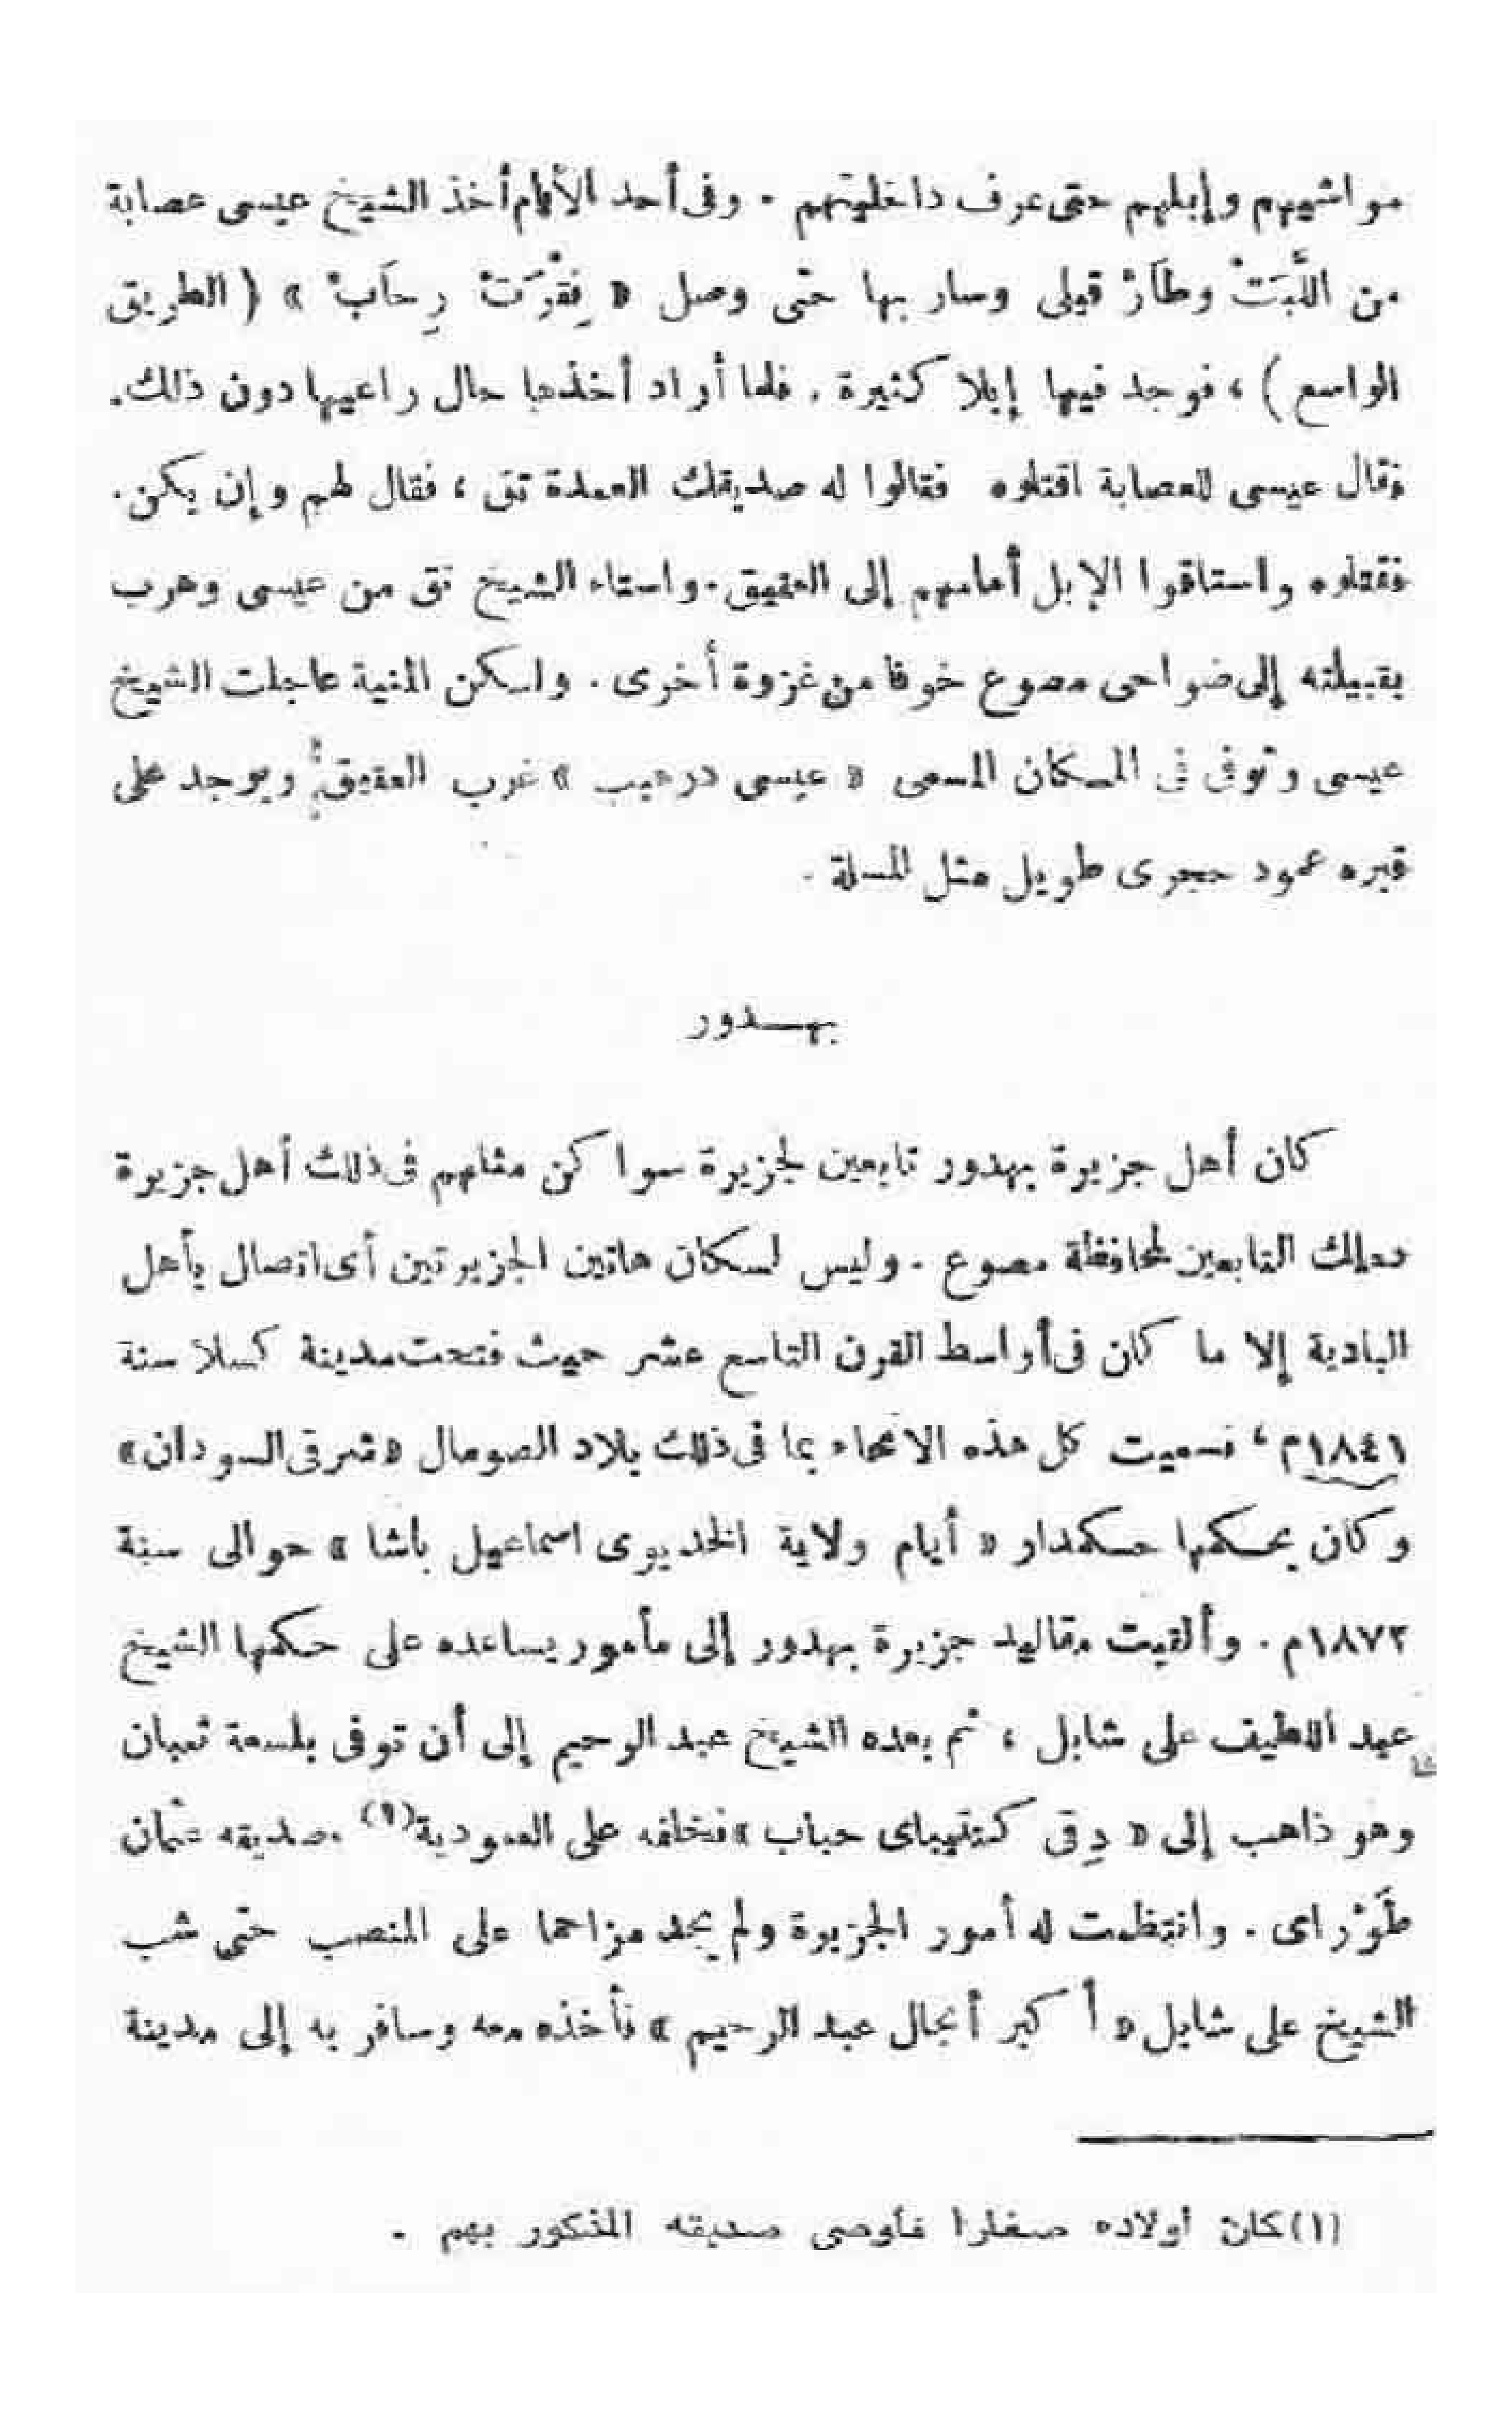 مواشيهم وإبلهم حتى عرف داخليتهم . وفى أحد الأيام أخذ الشيخ عيسى عصابة
من اللَّبَتْ وطَارْ قيلى وسار بها حتى وصل « نِقْرَتْ رِحَابْ » ( الطريق
الواسع ) ، فوجد فيها إبلا كثيرة . فلما أراد أخذها حال راعيها دون ذلك .
فقال عيسى للعصابة اقتلوه فقالوا له صديقك العمدة تق ، فقال لهم وإن يكن .
فقتلوه واستاقوا الإبل أمامهم إلى العقيق . واستاء الشيخ تق من عيسى وهرب
بقبيلته إلى ضواحى مصوع خوفا من غزوة أخرى . ولكن المنية عاجلت الشيخ
عيسى وتوفى فى المكان المسمى « عيسى درهيب » غرب العقيق ويوجد على
قبره عمود حجرى طويل مثل المسلة .
بهدور
كان أهل جزيرة بهدور تابعين لجزيرة سواكن مثلهم فى ذلك أهل جزيرة
دهلك التابعين لمحافظة مصوع . وليس لسكان هاتين الجزيرتين أى اتصال بأهل
البادية إلا ما كان فى أواسط القرن التاسع عشر حيث فتحت مدينة كسلا سنة
١٨٤١م ، فسميت كل هذه الانحاء بما فى ذلك بلاد الصومال « شرقى السودان »
وكان يحكمها حكمدار « أيام ولاية الخديوى اسماعيل باشا » حوالى سنة
١٨٧٢م . وألقيت مقاليد جزيرة بهدور إلى مأمور يساعده على حكمها الشيخ
عبد اللطيف على شابل ، ثم بعده الشيخ عبد الرحيم إلى أن توفى بلسعة ثعبان
وهو ذاهب إلى « دِقى كنتيباى حباب » فخلفه على العمودية (١) صديقه عثمان
طَوْراى . وانتظمت له أمور الجزيرة ولم يجد مزاحما على المنصب حتى شب
الشيخ على شابل « أكبر أنجال عبد الرحيم » فأخذه معه وسافر به إلى مدينة
(١) كان أولاده صغارا فأوصى صديقه المذكور بهم .